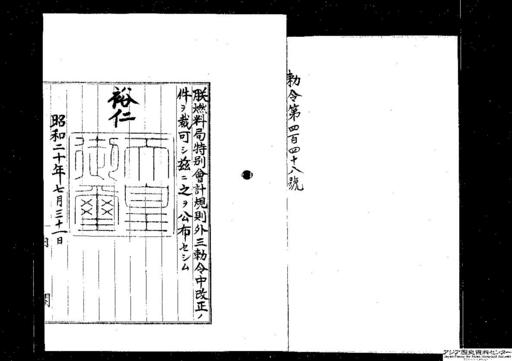 勅令第四百四十八號
朕燃料局特別會計規則外三勅令中改正ノ
件ヲ裁可シ茲ニ之ヲ公布セシム
裕仁
天皇
御璽
昭和二十年七月三十一日
内閣
アジア歴史資料センター